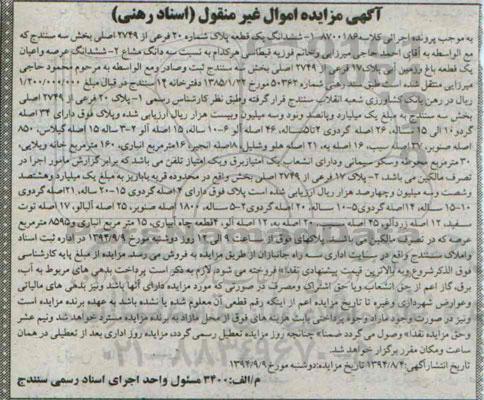 آگهی مزایده اموال غیر منقول (اسناد رهنی)
به موجب پرونده اجرائی کلاسه ۸۷۰۰۱۸۶ ۱- ششدانگ یک قطعه پلاک شماره ۲۰ فرعی از ۲۷۴۹ اصلی بخش سه سنندج که
مع الواسطه به آقای احمد حاجی میرزایی وخانم فوزیه قیطاسی هرکدام به نسبت سه دانگ مشاع ۲- ششدانگ عرصه واعیان
یک قطعه باغ وزمین آبی پلاک ۱۷ فرعی از ۲۷۴۹ اصلی بخش سه سنندج ثبت وصادر ومع الواسطه به مرحوم محمود حاجی
میرزایی منتقل شده است طبق سند رهنی شماره ۵۰۳۶۲ مورخ ۱۳۸۵/۱/۲۲ دفترخانه ۱۲ سنندج در قبال مبلغ ۱/۲۰۰/۰۰۰/۰۰۰
ریال در رهن بانک کشاورزی شعبه انقلاب سنندج قرار گرفته وطبق نظر کارشناس رسمی ۱- پلاک ۲۰ فرعی از ۲۷۴۹ اصلی
بخش سه سنندج به مبلغ یک میلیارد وپانصد ونود وسه میلیون وبیست هزار ریال ارزیابی شده وپلاک فوق دارای ۳۴ اصله
گردو ۱۰ الی ۱۵ ساله، ۲۶ اصله گردوی ۲تا۵ساله، ۴۶ اصله آلو ۶-۱۰ ساله، ۱۵ اصله آلو ۲-۳ ساله ۱۵ اصله گیلاس، ۸۵۰
اصله صنوبر، ۳۷ اصله سیب، ۱۶ اصله به، ۲۱ اصله هلو وشلیل، ۸ اصله انجیر، ۱۶ مترمربع انباری، ۱۶۰ مترمربع خانه ویلایی،
۳۰ مترمربع محوطه وسکوسیمانی ودارای انشعاب یک امتیاز برق ویک امتیاز تلفن می باشد که برابر گزارش مامور اجرا در
تصرف مالک می باشد. ۲- پلاک ۱۷ فرعی از ۲۷۴۹ اصلی بخش واقع در محدوده قریه باباریز به مبلغ یک میلیارد وهشتصد
وشصت وسه میلیون وچهارصد هزار ریال ارزیابی شده است پلاک فوق دارای ۴ اصله گردوی ۱۵-۲۰ ساله، ۲۱ اصله گردوی
۱۰-۱۵ ساله، ۱۴ اصله گردوی ۵-۱۰ ساله، ۲۰ اصله گردوی ۲-۵ ساله، ۱۸۰ اصله صنوبر، ۲۵ اصله آلبالو، ۱۷ اصله توت
سفید، ۱۲ اصله زردآلو، ۲۵ اصله سیب، ۲۰ اصله به، ۱۲ اصله آلو، ۴ قطعه سد انباری، ۱۵ متر مربع انباری و ۸۵۹۵ مترمربع
عرصه که در تصرف مالکین می باشند. پلاکهای فوق از ساعت ۹ الی ۱۲ روز دوشنبه مورخ ۱۳۹۴/۹/۹ در اداره ثبت اسناد
واملاک سنندج واقع در سایت اداری سه راه جانبازان از طریق مزایده به فروش می رسد. مزایده از مبلغ پایه کارشناسی
فوق الذکر شروع وبه بالاترین قیمت پیشنهادی نقدا" فروخته می شود. لازم به ذکر است پرداخت بدهی های مربوط به آب،
برق، گاز اعم از حق انشعاب ویا حق اشتراک ومصرف در صورتی که مورد مزایده دارای آنها باشد ونیز بدهی های مالیاتی
وعوارض شهرداری وغیره تا تاریخ مزایده اعم از اینکه رقم قطعی آن معلوم شده یا نشده باشد به عهده برنده مزایده است
ونیز در صورت وجود مازاد وجوه پرداختی بابت هزینه های فوق از محل مازاد به برنده مزایده مسترد خواهد شد ونیم عشر
وحق مزایده نقدا" وصول می گردد ضمنا" چنانچه روز مزایده تعطیل رسمی گردد، مزایده روز اداری بعد از تعطیلی در همان
ساعت ومکان مقرر برگزار خواهد شد.
تاریخ انتشار آگهی: ۱۳۹۴/۸/۴ تاریخ مزایده: دوشنبه مورخ ۱۳۹۴/۹/۹
م/الف: ۳۴۰۰ مسئول واحد اجرای اسناد رسمی سنندج
۰۲۱-۸۸۳۴۹۶۷۰